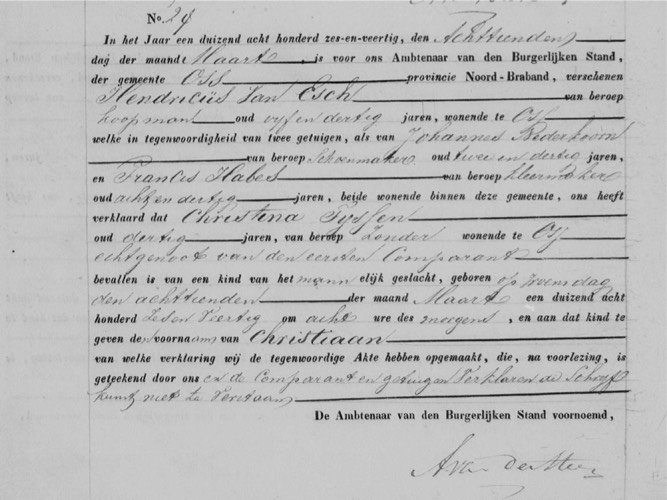 No. 29
In het Jaar een duizend acht honderd zes-en-veertig, den Achttienden
dag der maand Maart is voor ons Ambtenaar van den Burgerlijken Stand,
der gemeente Oss provincie Noord-Braband, verschenen
Hendricus Van Esch van beroep
koopman oud vyf en dertig jaren, wonende te Oss
welke in tegenwoordigheid van twee getuigen, als van Johannes
van beroep Schoenmaker oud twee en dertig jaren,
en Francis Habes van beroep kleermaker
oud acht en dertig jaren, beide wonende binnen deze gemeente, ons heeft
verklaard dat Christina Tyssen
oud dertig jaren, van beroep Zonder wonende te Oss
echtgenoot van den eersten Comparant
bevallen is van een kind van het mann elijk geslacht, geboren op woensdag
den achttienden der maand Maart een duizend acht
honderd Zes en Veertig om acht ure des morgens, en aan dat kind te
geven den voornaam van Christiaan
van welke verklaring wij de tegenwoordige Akte hebben opgemaakt, die, na voorlezing, is
geteekend door ons en de Comparant en getuigen Verklaren de Schryf
kunst niet te Verstaan
De Ambtenaar van den Burgerlijken Stand voornoemd,
A van der